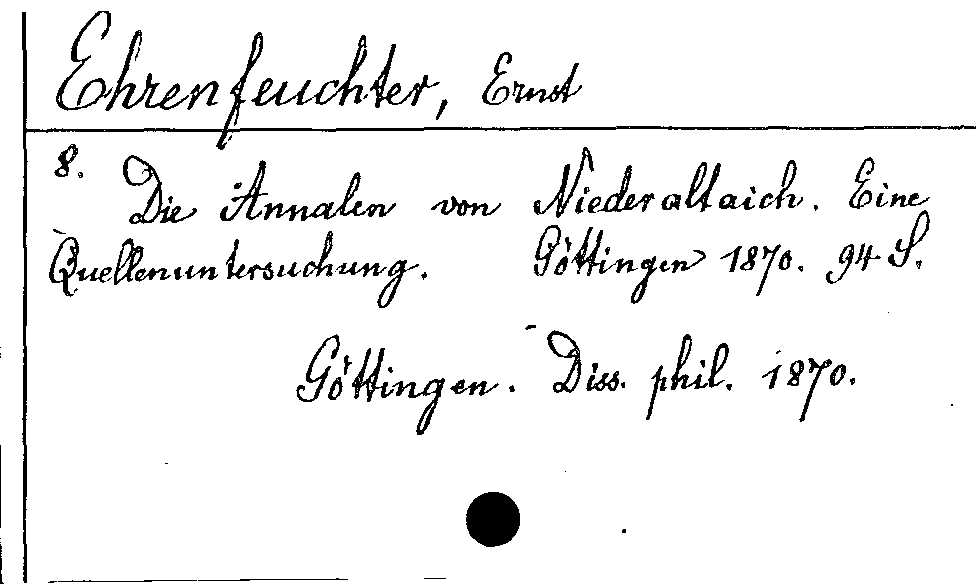 Ehrenfeuchter, Ernst
8.
Die Annalen von Niederaltaich. Eine
Quellenuntersuchung. Göttingen 1870. 94 S.
Göttingen. Diss. phil. 1870.